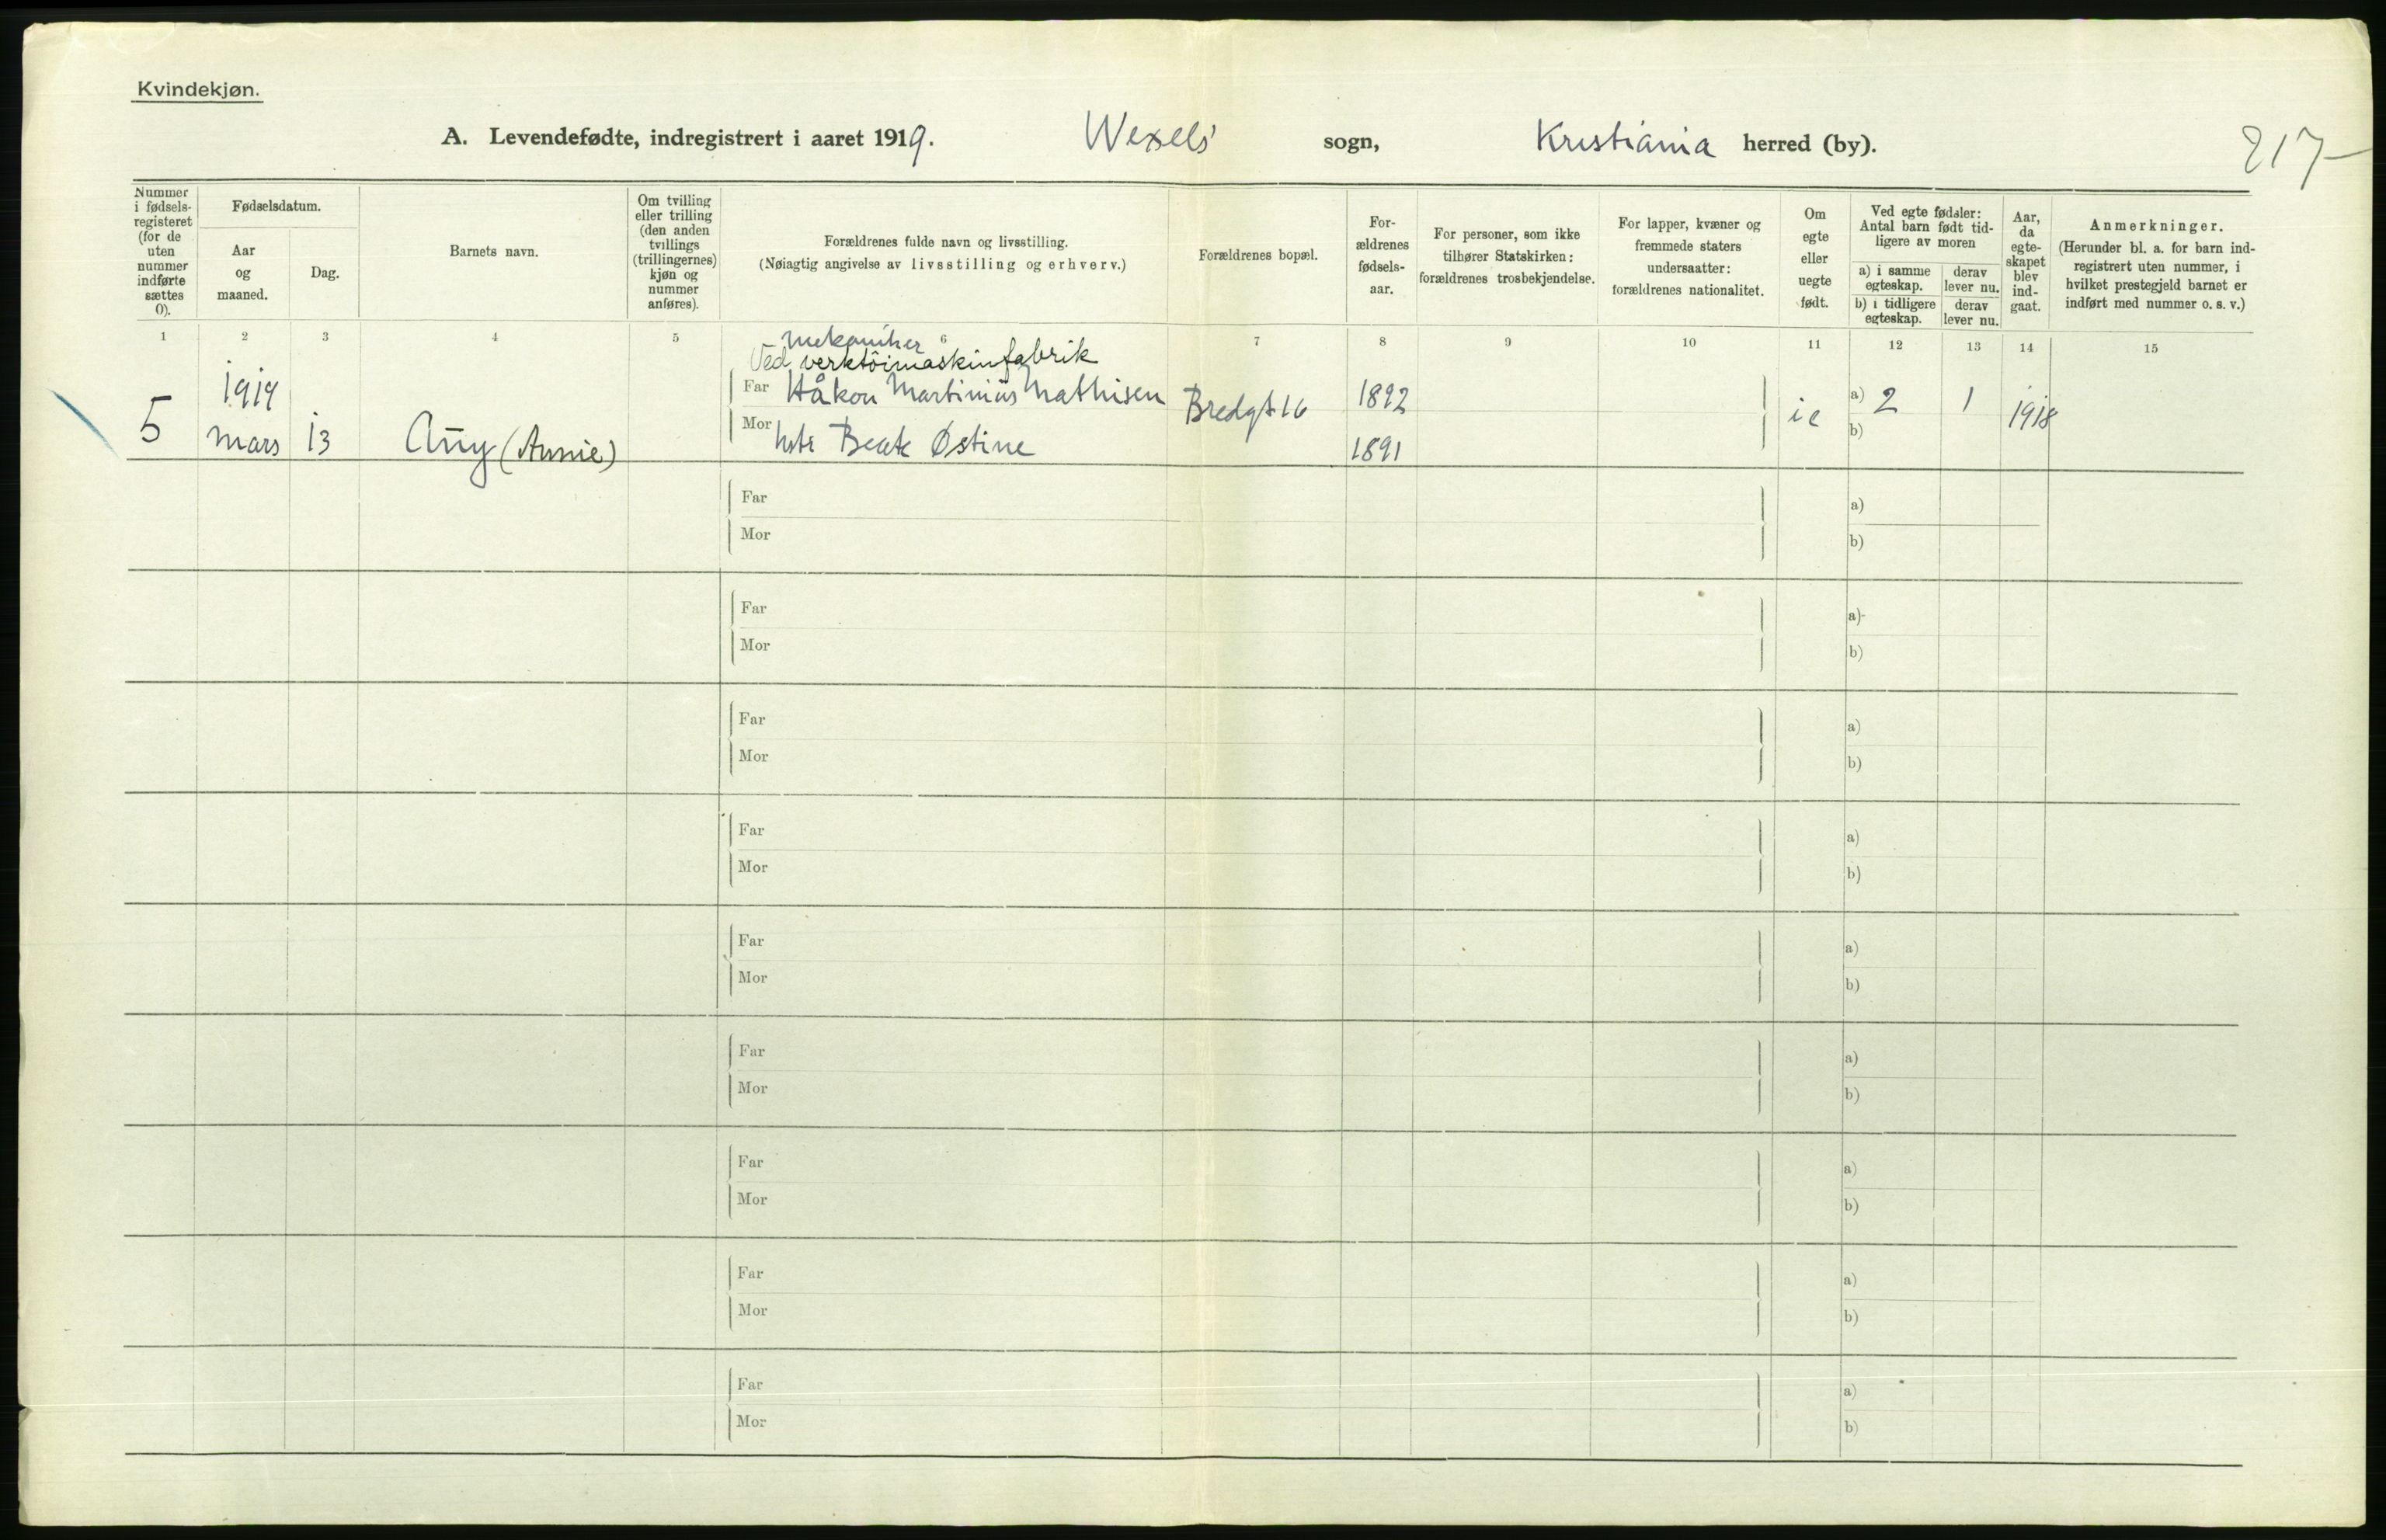 Kvindekjøn.
A. Levendefødte, indregistrert i aaret 1919. Wexels' sogn, Kristiania herred (by).
217
Nummer i fødsels-registeret (for de uten nummer indførte sættes 0).
Fødselsdatum.
Aar og maaned.
Dag.
Barnets navn.
Om tvilling eller trilling (den anden tvillings (trillingernes) kjøn og nummer anføres).
Forældrenes fulde navn og livsstilling.
(Nøiagtig angivelse av livsstilling og erhverv.)
Forældrenes bopæl.
For-ældrenes fødsels-aar.
For personer, som ikke tilhører Statskirken: forældrenes trosbekjendelse.
For lapper, kvæner og fremmede staters undersaatter: forældrenes nationalitet.
Om egte eller uegte født.
Ved egte fødsler: Antal barn født tid-ligere av moren
a) i samme egteskap.
derav lever nu.
b) i tidligere egteskap.
derav lever nu.
Aar, da egte-skapet blev ind-gaat.
Anmerkninger.
(Herunder bl. a. for barn ind-registrert uten nummer, i hvilket prestegjeld barnet er indført med nummer o. s. v.)
1 2 3 4 5 6 7 8 9 10 11 12 13 14 15
Mekaniker
Ved verktöimaskinfabrik
1919
Far Håkon Martinius Mathisen Bredgt 16 1892
5 mars 13 Any (Annie)
Mor Beate Østine 1891
a) 2 1 1918
b)
Far a)
Mor b)
Far a)
Mor b)
Far a)
Mor b)
Far a)
Mor b)
Far a)
Mor b)
Far a)
Mor b)
Far a)
Mor b)
Far a)
Mor b)
Far a)
Mor b)